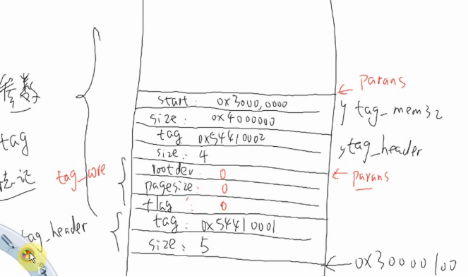 参数
tag
标记
tag_core
tag_header
start: 0x3000,0000
size: 0x4000000
tag 0x54410002
size: 4
rootdev: 0
pagesize: 0
flag: 0
tag: 0x54410001
size: 5
params
tag_mem32
tag_header
params
0x30000100